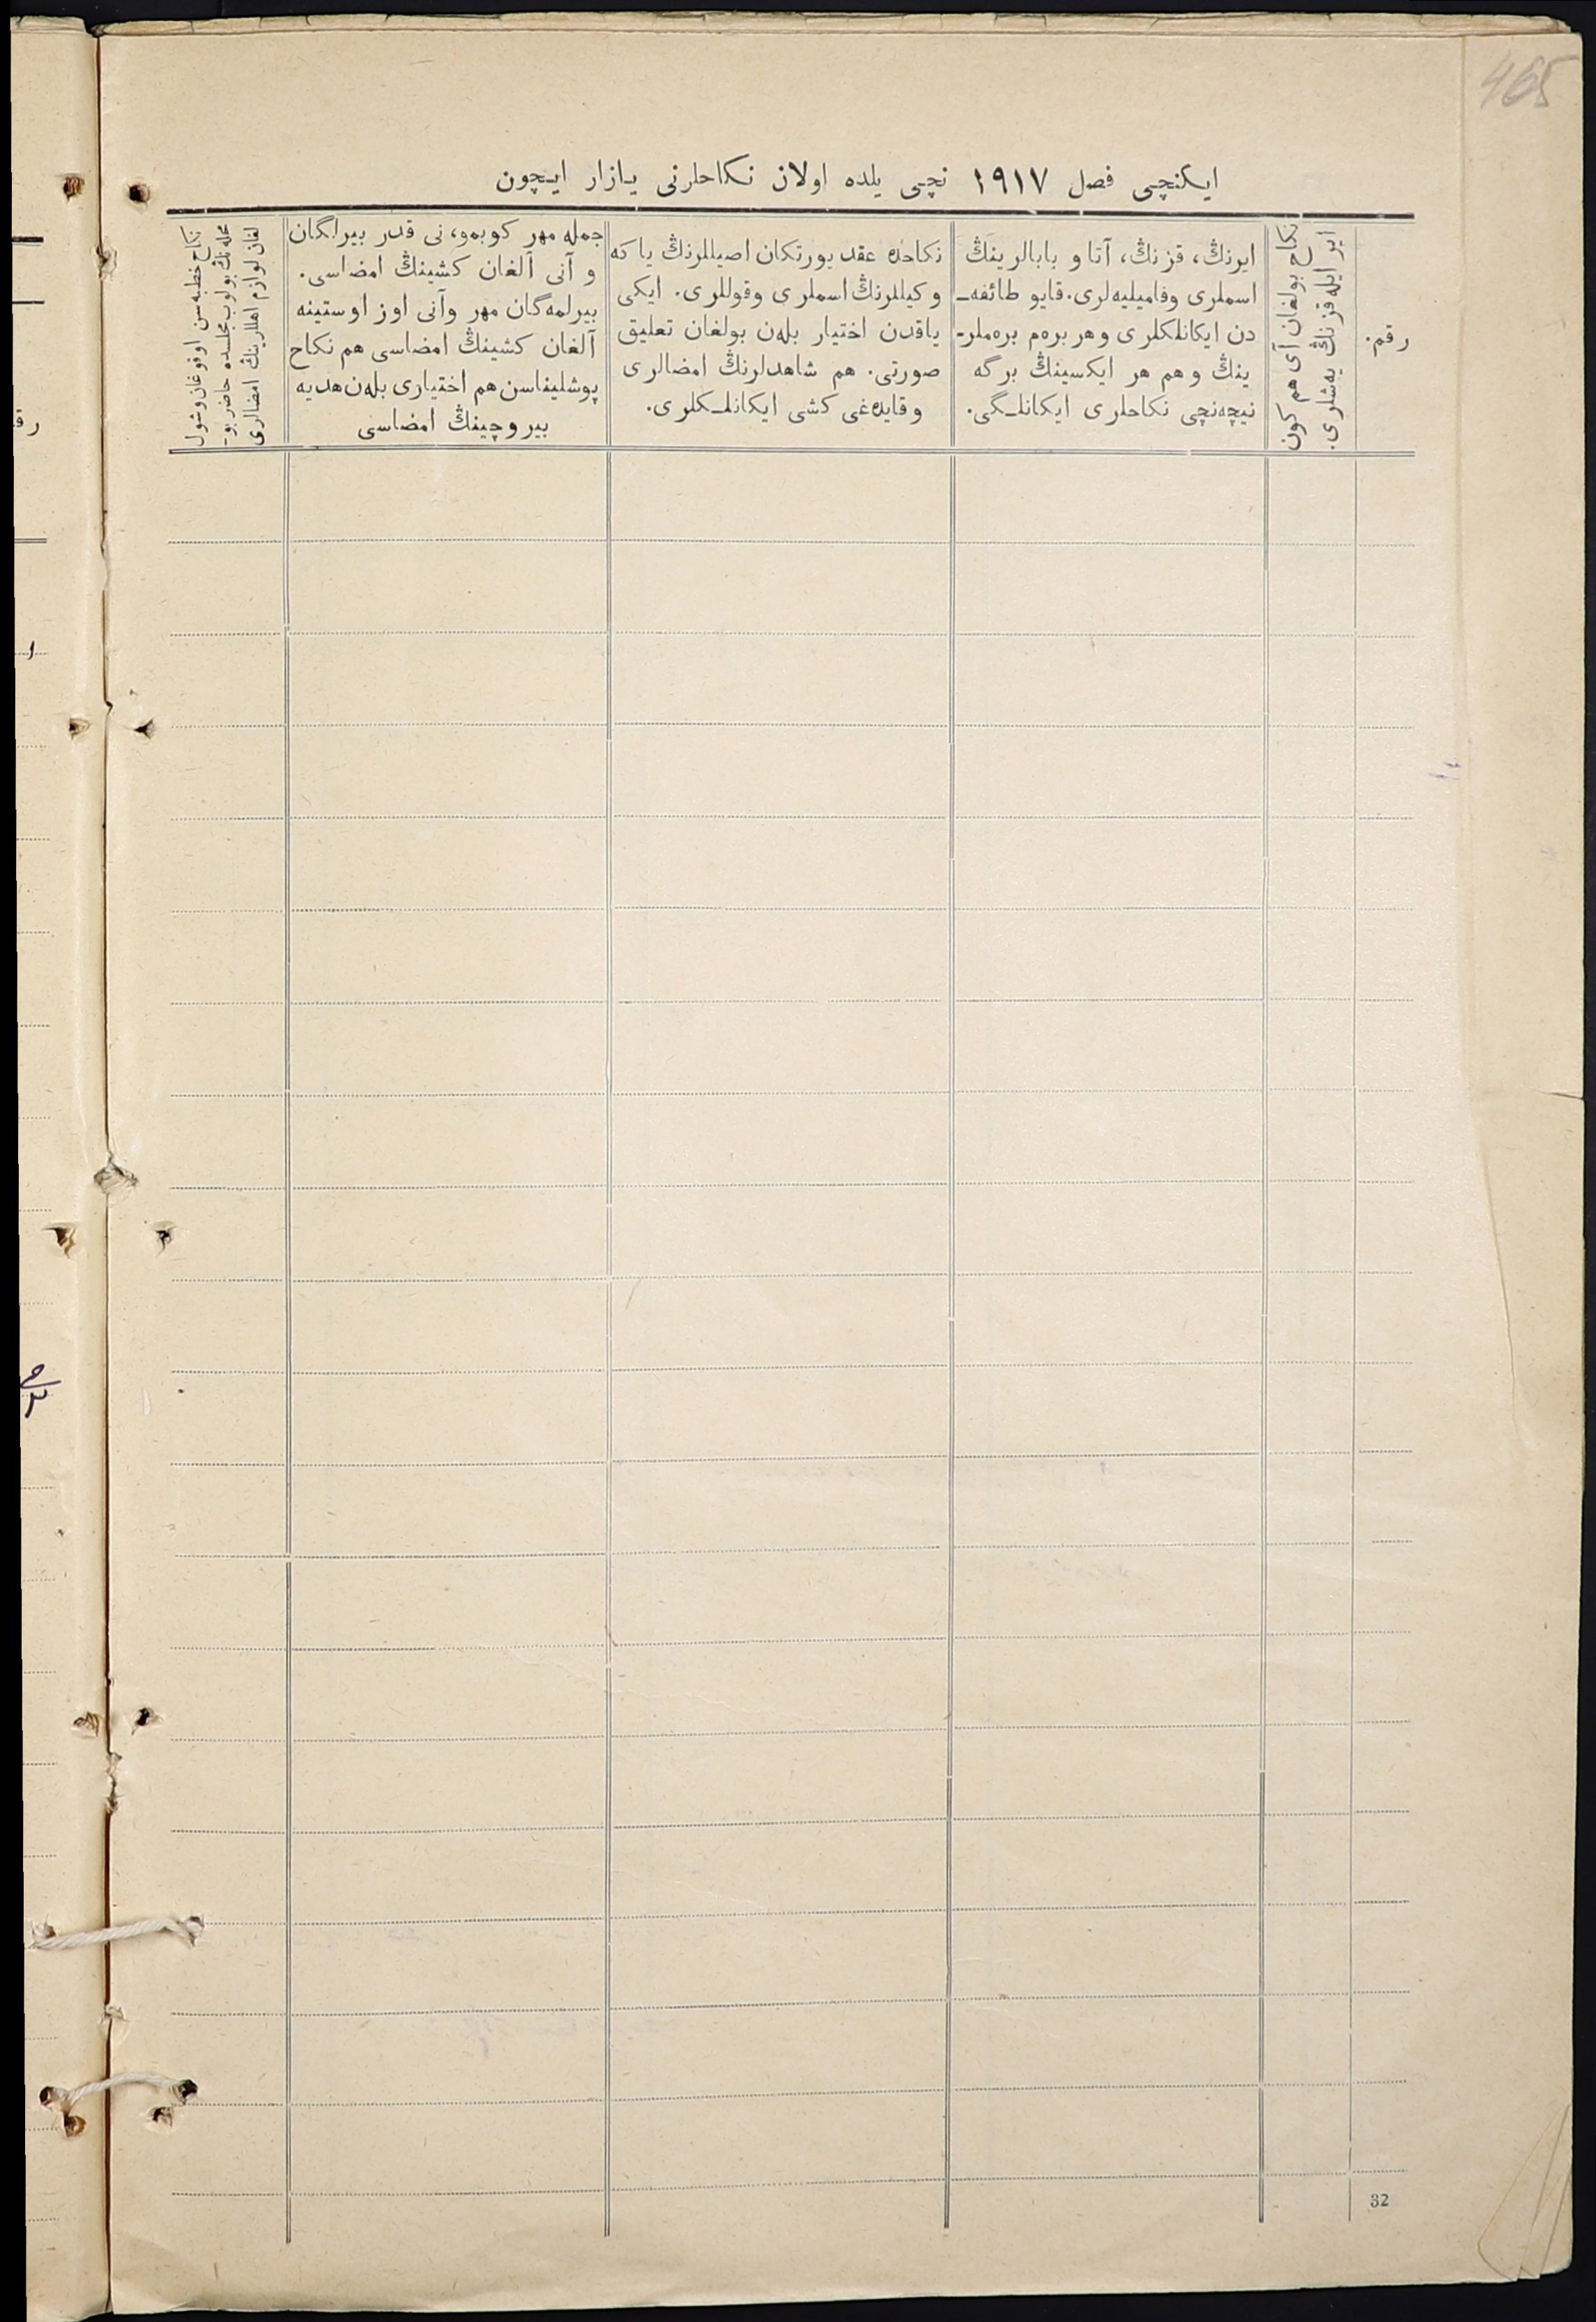 465
ایکنچی فصل ١٩١٧ نچی یلده اولان نکاحلرنی یازار ایچون
رقم.
نکاح بولغان آی هم کون
ایر ایله قزنڭ یەشلری.
ایرنڭ، قزنڭ، آتا و بابالرینڭ
اسملری وفامیلیەلری. قایو طائفه‌ـ
دن ایکانلکلری وهر برەم برەملر-
ینڭ وهم هر ایکسینڭ برگه
نیچەنچی نکاحلری ایکانلـگی.
نکاحده عقد یورتکان اصیللرنڭ یا که
وکیللرنڭ اسملری وقوللری. ایکی
یاقدن اختیار بلەن بولغان تعلیق
صورتی. هم شاهدلرنڭ امضالری
وقایدەغی کشی ایکانلـکلری.
جمله مهر کوبمو، نی قدر بیرلگان
و آنی آلغان کشینڭ امضاسی.
بیرلمەگان مهر وآنی اوز اوستینه
آلغان کشینڭ امضاسی هم نکاح
پوشلیناسن هم اختیاری بلەن هدیه
بیروچینڭ امضاسی
نکاح خطبەسن اوقوغان وشول
محلەنڭ بولوب مجلسده حاضر بو-
لغان لوازم اهللرینڭ امضالری
32